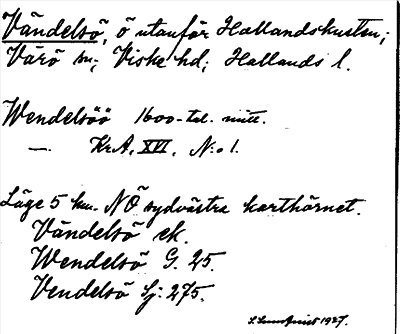 Vändelsö, ö utanför Hallandskusten;
Värö sn; Viske hd; Hallands l.
Wendelsöö 1600-tal. mitt.
— KrA, XVI, N:o 1.
Läge 5 km. NÖ sydvästra karthörnet.
Vändelsö ek.
Wendelsö G. 25.
Vendelsö Sj: 275.
S. Lundquist 1927.